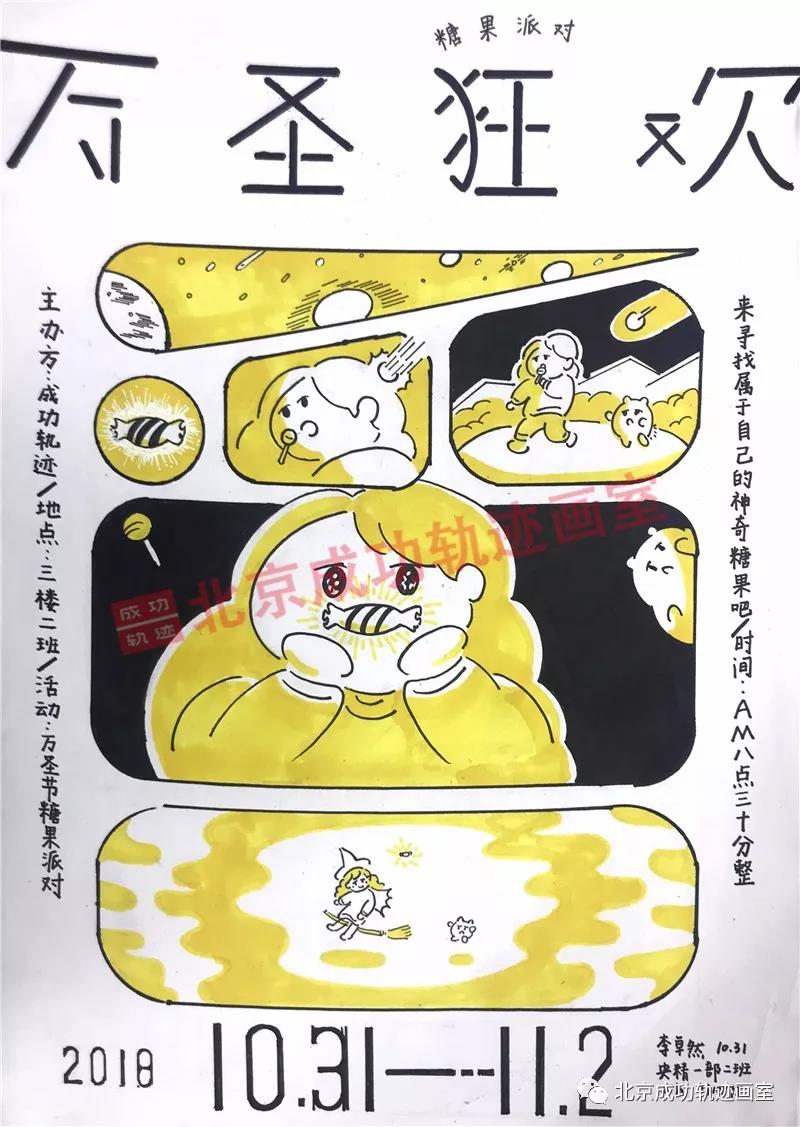 糖果派对
万圣狂欢
主办方:成功轨迹/地点:三楼二班/活动:万圣节糖果派对
来寻找属于自己的神奇糖果吧/时间:AM八点三十分整
成功
轨迹
北京成功轨迹画室
2018
10.31—--11.2
李卓然 10.31
央精一部二班
北京成功轨迹画室